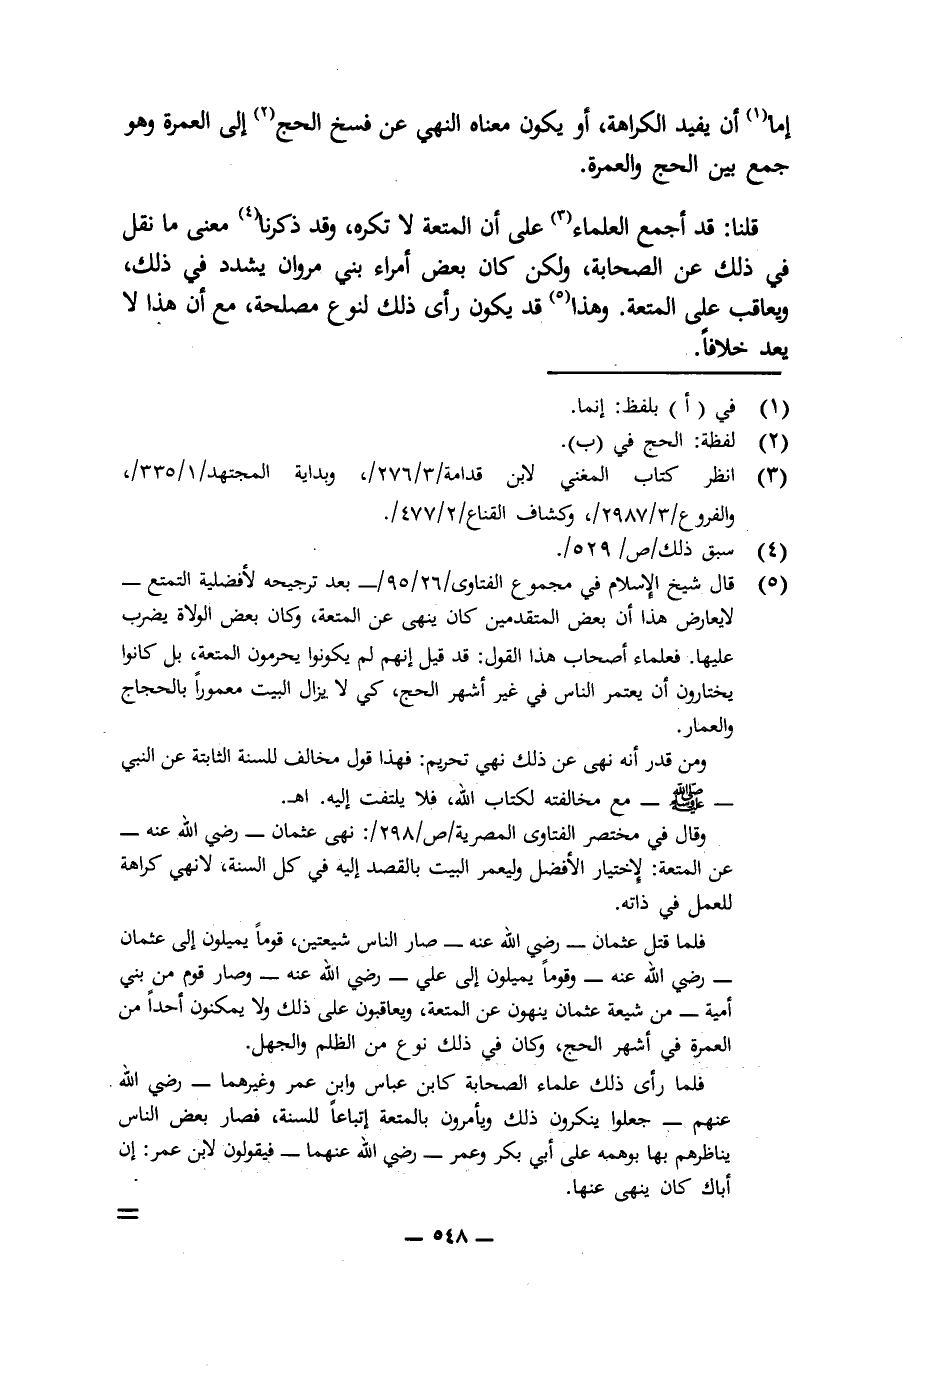 إما(١) أن يفيد الكراهة، أو يكون معناه النهي عن فسخ الحج(٢) إلى العمرة وهو
جمع بين الحج والعمرة.
قلنا: قد أجمع العلماء(٣) على أن المتعة لا تكره، وقد ذكرنا(٤) معنى ما نقل
في ذلك عن الصحابة، ولكن كان بعض أمراء بني مروان يشدد في ذلك،
ويعاقب على المتعة. وهذا(٥) قد يكون رأى ذلك لنوع مصلحة، مع أن هذا لا
يعد خلافاً.
(١) في ( أ ) بلفظ: إنما.
(٢) لفظة: الحج في (ب).
(٣) انظر كتاب المغني لابن قدامة/٢٧٦/٣/، وبداية المجتهد/٣٣٥/١/،
والفروع/٢٩٨٧/٣/، وكشاف القناع/٤٧٧/٢/.
(٤) سبق ذلك/ص/ ٥٢٩/.
(٥) قال شيخ الإسلام في مجموع الفتاوى/٩٥/٢٦/ــ بعد ترجيحه لأفضلية التمتع ــ
لايعارض هذا أن بعض المتقدمين كان ينهى عن المتعة، وكان بعض الولاة يضرب
عليها. فعلماء أصحاب هذا القول: قد قيل إنهم لم يكونوا يحرمون المتعة، بل كانوا
يختارون أن يعتمر الناس في غير أشهر الحج، كي لا يزال البيت معموراً بالحجاج
والعمار.
ومن قدر أنه نهى عن ذلك نهي تحريم: فهذا قول مخالف للسنة الثابتة عن النبي
ــ ﷺ ــ مع مخالفته لكتاب الله، فلا يلتفت إليه. اهـ.
وقال في مختصر الفتاوى المصرية/ص/٢٩٨/: نهى عثمان ــ رضي الله عنه ــ
عن المتعة: لإختيار الأفضل وليعمر البيت بالقصد إليه في كل السنة، لانهي كراهة
للعمل في ذاته.
فلما قتل عثمان ــ رضي الله عنه ــ صار الناس شيعتين، قوماً يميلون إلى عثمان
ــ رضي الله عنه ــ وقوماً يميلون إلى علي ــ رضي الله عنه ــ وصار قوم من بني
أمية ــ من شيعة عثمان ينهون عن المتعة، ويعاقبون على ذلك ولا يمكنون أحداً من
العمرة في أشهر الحج، وكان في ذلك نوع من الظلم والجهل.
فلما رأى ذلك علماء الصحابة كابن عباس وابن عمر وغيرهما ــ رضي الله
عنهم ــ جعلوا ينكرون ذلك ويأمرون بالمتعة إتباعاً للسنة، فصار بعض الناس
يناظرهم بها بوهمه على أبي بكر وعمر ــ رضي الله عنهما ــ فيقولون لابن عمر: إن
أباك كان ينهى عنها.
=
ــ ٥٤٨ ــ